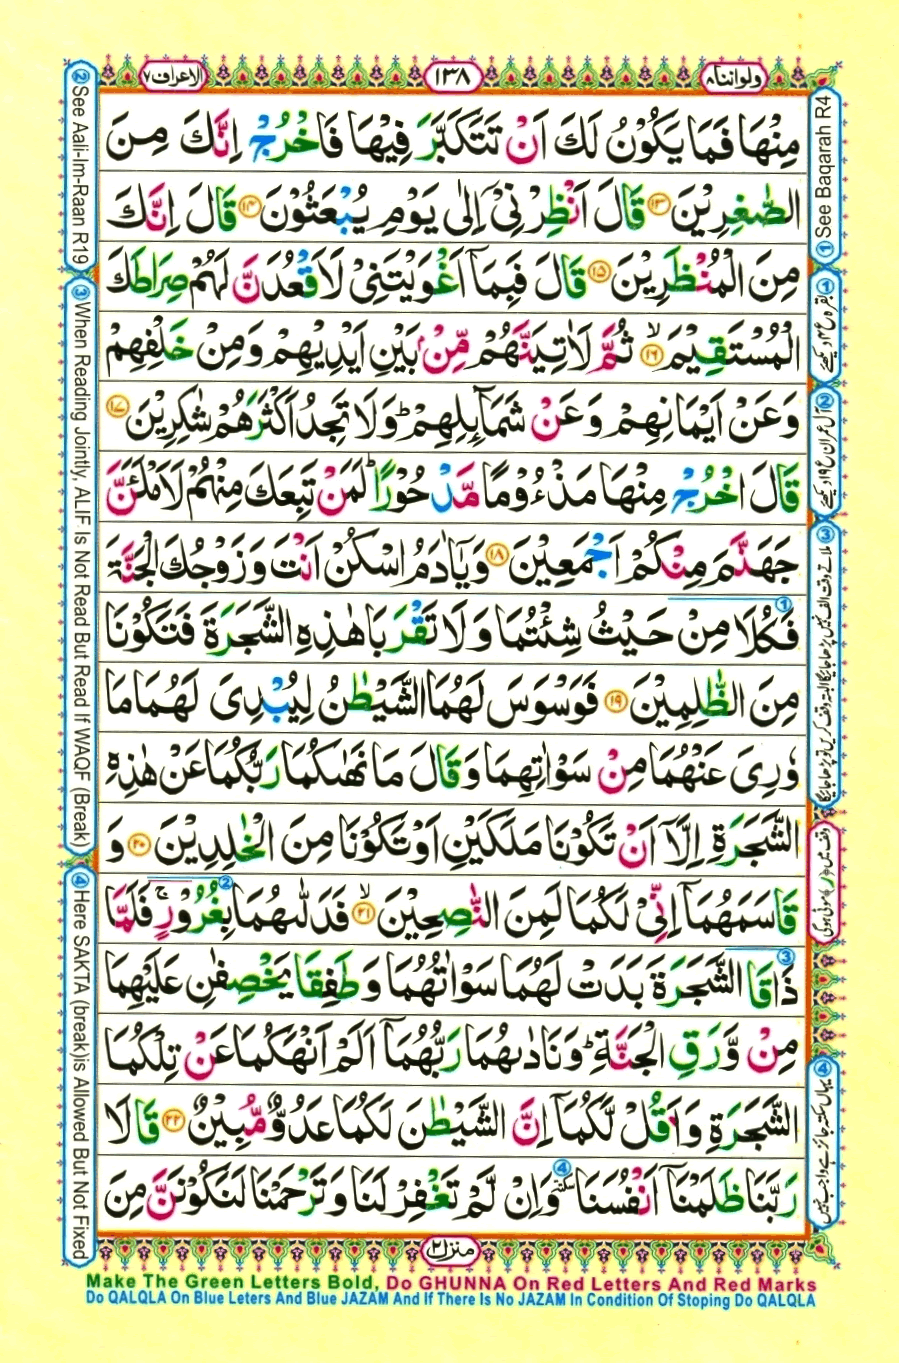 ولواننا ۸
۱۳۸
الاعراف ۷
مِنْهَا فَمَا يَكُوْنُ لَكَ اَنْ تَتَكَبَّرَ فِيْهَا فَاخْرُجْ اِنَّكَ مِنَ
الصّٰغِرِيْنَ ۱۳ قَالَ اَنْظِرْنِىْۤ اِلٰى يَوْمِ يُبْعَثُوْنَ ۱۴ قَالَ اِنَّكَ
مِنَ الْمُنْظَرِيْنَ ۱۵ قَالَ فَبِمَاۤ اَغْوَيْتَنِىْ لَاَقْعُدَنَّ لَهُمْ صِرَاطَكَ
الْمُسْتَقِيْمَ ۙ۱۶ ثُمَّ لَاٰتِيَنَّهُمْ مِّنْۢ بَيْنِ اَيْدِيْهِمْ وَمِنْ خَلْفِهِمْ
وَعَنْ اَيْمَانِهِمْ وَعَنْ شَمَآئِلِهِمْ ؕ وَلَا تَجِدُ اَكْثَرَهُمْ شٰكِرِيْنَ ۱۷
قَالَ اخْرُجْ مِنْهَا مَذْءُوْمًا مَّدْحُوْرًا ؕ لَمَنْ تَبِعَكَ مِنْهُمْ لَاَمْلَـَٔنَّ
جَهَنَّمَ مِنْكُمْ اَجْمَعِيْنَ ۱۸ وَيٰۤاٰدَمُ اسْكُنْ اَنْتَ وَزَوْجُكَ الْجَنَّةَ
فَكُلَا مِنْ حَيْثُ شِئْتُمَا وَلَا تَقْرَبَا هٰذِهِ الشَّجَرَةَ فَتَكُوْنَا ①
مِنَ الظّٰلِمِيْنَ ۱۹ فَوَسْوَسَ لَهُمَا الشَّيْطٰنُ لِيُبْدِىَ لَهُمَا مَا
وٗرِىَ عَنْهُمَا مِنْ سَوْاٰتِهِمَا وَقَالَ مَا نَهٰىكُمَا رَبُّكُمَا عَنْ هٰذِهِ
الشَّجَرَةِ اِلَّاۤ اَنْ تَكُوْنَا مَلَكَيْنِ اَوْ تَكُوْنَا مِنَ الْخٰلِدِيْنَ ۲۰ وَ
قَاسَمَهُمَاۤ اِنِّىْ لَكُمَا لَمِنَ النّٰصِحِيْنَ ۙ۲۱ فَدَلّٰىهُمَا بِغُرُوْرٍ ۚ فَلَمَّا ②
ذَاقَا الشَّجَرَةَ بَدَتْ لَهُمَا سَوْاٰتُهُمَا وَطَفِقَا يَخْصِفٰنِ عَلَيْهِمَا ③
مِنْ وَّرَقِ الْجَنَّةِ ؕ وَنَادٰىهُمَا رَبُّهُمَاۤ اَلَمْ اَنْهَكُمَا عَنْ تِلْكُمَا
الشَّجَرَةِ وَاَقُلْ لَّكُمَاۤ اِنَّ الشَّيْطٰنَ لَكُمَا عَدُوٌّ مُّبِيْنٌ ۲۲ قَالَا
رَبَّنَا ظَلَمْنَاۤ اَنْفُسَنَا ④ سكتة وَاِنْ لَّمْ تَغْفِرْ لَنَا وَتَرْحَمْنَا لَنَكُوْنَنَّ مِنَ
منزل ۲
① See Baqarah R4
② See Aali-Im-Raan R19
③ When Reading Jointly, ALIF Is Not Read But Read If WAQF (Break)
④ Here SAKTA (break)is Allowed But Not Fixed
Make The Green Letters Bold, Do GHUNNA On Red Letters And Red Marks
Do QALQLA On Blue Leters And Blue JAZAM And If There Is No JAZAM In Condition Of Stoping Do QALQLA